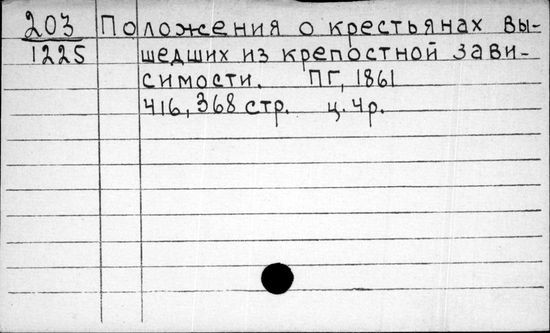 203 Положения о крестьянах вы-
1225 шедших из крепостной зави-
симости. ПГ, 1861
416, 368 стр. ц. 4р.